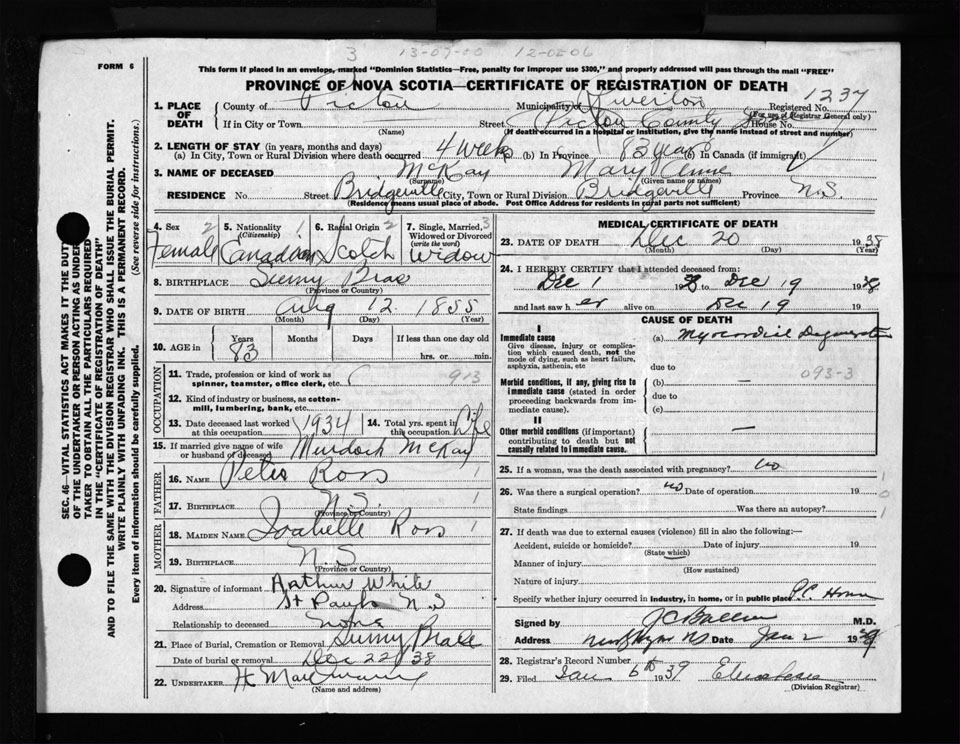 3 13-09-00 12-02-06
FORM 6
This form if placed in an envelope, marked "Dominion Statistics—Free, penalty for improper use $300," and properly addressed will pass through the mail "FREE"
PROVINCE OF NOVA SCOTIA—CERTIFICATE OF REGISTRATION OF DEATH
1. PLACE OF DEATH County of Pictou Municipality of Riverton Registered No. 1237
(For use of Registrar General only)
If in City or Town Street Pictou County House No.
(Name) (If death occurred in a hospital or institution, give the name instead of street and number)
2. LENGTH OF STAY (in years, months and days)
(a) In City, Town or Rural Division where death occurred 4 weeks (b) In Province 83 years (c) In Canada (if immigrant)
3. NAME OF DECEASED McKay Mary Anne
(Surname) (Given name or names)
RESIDENCE No. Street Bridgeville City, Town or Rural Division Bridgeville Province N.S.
(Residence means usual place of abode. Post Office Address for residents in rural parts not sufficient)
4. Sex 2 Female
5. Nationality (Citizenship) 1 Canadian
6. Racial Origin 2 Scotch
7. Single, Married, Widowed or Divorced (write the word) 3 Widow
8. BIRTHPLACE Sunny Brae
(Province or Country)
9. DATE OF BIRTH Aug 12 1855
(Month) (Day) (Year)
10. AGE in Years Months Days If less than one day old
83 hrs. or min.
OCCUPATION
11. Trade, profession or kind of work as spinner, teamster, office clerk, etc. 913
12. Kind of industry or business, as cotton-mill, lumbering, bank, etc.
13. Date deceased last worked at this occupation 1934 14. Total yrs. spent in this occupation Life
15. If married give name of wife or husband of deceased Murdoch McKay
FATHER
16. NAME Peter Ross 1
17. BIRTHPLACE N.S. 1
(Province or Country)
MOTHER
18. MAIDEN NAME Isabelle Ross 1
19. BIRTHPLACE N.S
(Province or Country)
20. Signature of informant Arthur White
Address St Pauls N.S
Relationship to deceased none
21. Place of Burial, Cremation or Removal Sunny Brae
Date of burial or removal Dec 22 38
22. UNDERTAKER H
(Name and address)
MEDICAL CERTIFICATE OF DEATH
23. DATE OF DEATH Dec 20 1938
(Month) (Day) (Year)
24. I HEREBY CERTIFY that I attended deceased from:
Dec 1 1938 to Dec 19 1938
and last saw h er alive on Dec 19 19
CAUSE OF DEATH
I
Immediate cause (a) Myocardial Degeneration
Give disease, injury or complication which caused death, not the mode of dying, such as heart failure, asphyxia, asthenia, etc.
due to 093-3
Morbid conditions, if any, giving rise to immediate cause (stated in order proceeding backwards from immediate cause).
(b) —
due to
(c)
II
Other morbid conditions (if important) contributing to death but not causally related to immediate cause. —
25. If a woman, was the death associated with pregnancy? no
26. Was there a surgical operation? no Date of operation 19
State findings Was there an autopsy?
27. If death was due to external causes (violence) fill in also the following:—
Accident, suicide or homicide? Date of injury 19
(State which)
Manner of injury
(How sustained)
Nature of injury
Specify whether injury occurred in industry, in home, or in public place P.C. Home
Signed by M.D.
Address Date Jan 2 1939
28. Registrar's Record Number
29. Filed Jan 6th 1939
(Division Registrar)
SEC. 46—VITAL STATISTICS ACT MAKES IT THE DUTY
OF THE UNDERTAKER OR PERSON ACTING AS UNDER-
TAKER TO OBTAIN ALL THE PARTICULARS REQUIRED
IN THE "CERTIFICATE OF REGISTRATION OF DEATH"
AND TO FILE THE SAME WITH THE DIVISION REGISTRAR WHO SHALL ISSUE THE BURIAL PERMIT.
WRITE PLAINLY WITH UNFADING INK. THIS IS A PERMANENT RECORD.
Every item of information should be carefully supplied. (See reverse side for instructions.)